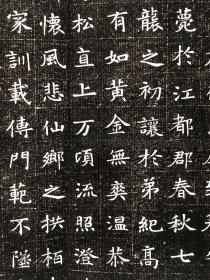 薨於江都郡春秋七
龍之初讓於弟紀高
有如黃金無爽温恭
松直上万頃流照澄
懷風悲仙鄉之拱栢
家訓載傳門範不墜